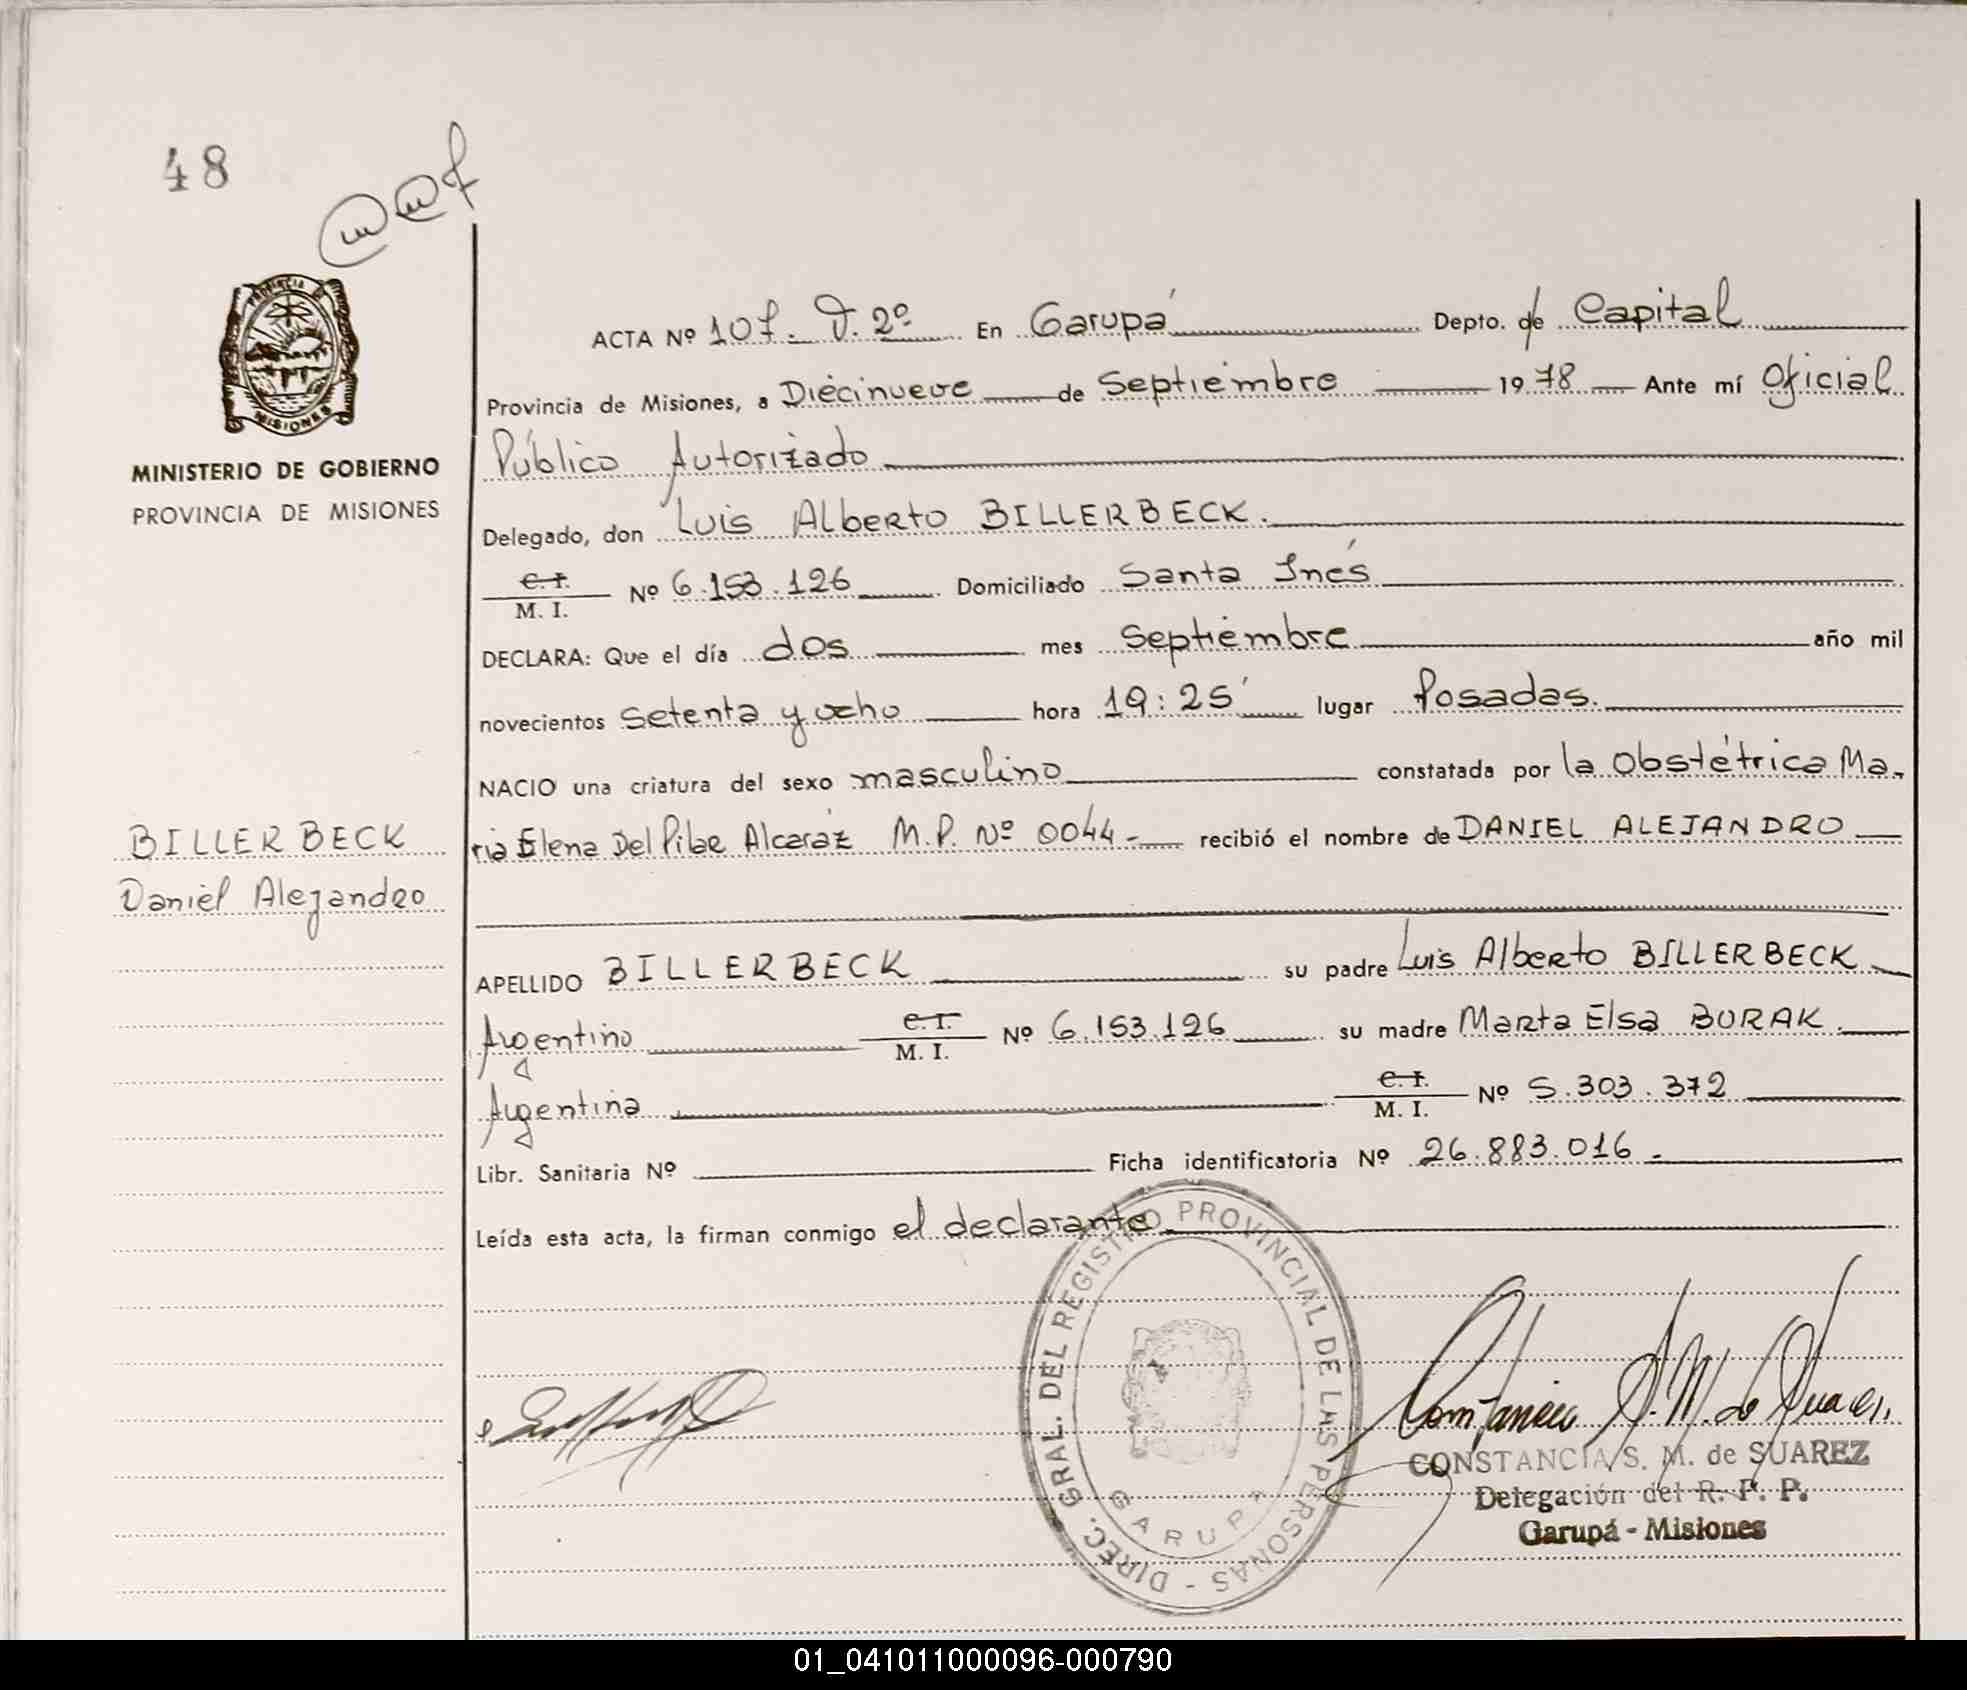 48
PROVINCIA DE
MISIONES
MINISTERIO DE GOBIERNO
PROVINCIA DE MISIONES
ACTA Nº 107. T. 2º En Garupá Depto. de Capital
Provincia de Misiones, a Diecinueve de Septiembre 1978 Ante mí Oficial
Público Autorizado
Delegado, don Luis Alberto BILLERBECK.
C. I.
M. I. Nº 6.153.126 Domiciliado Santa Inés
DECLARA: Que el día dos mes Septiembre año mil
novecientos setenta y ocho hora 19:25' lugar Posadas.
NACIO una criatura del sexo masculino constatada por la Obstétrica Ma-
BILLERBECK
Daniel Alejandro
ria Elena Del Pilar Alcaráz M.P. Nº 0044- recibió el nombre de DANIEL ALEJANDRO
APELLIDO BILLERBECK su padre Luis Alberto BILLERBECK
Argentino C. I. M. I. Nº 6.153.126 su madre Marta Elsa BURAK.
Argentina C. I. M. I. Nº 5.303.372
Libr. Sanitaria Nº Ficha identificatoria Nº 26.883.016.-
Leída esta acta, la firman conmigo el declarante
DIREC. GRAL. DEL REGISTRO PROVINCIAL DE LAS PERSONAS -
GARUPA
Constancia S. M. de Suarez
CONSTANCIA S. M. de SUAREZ
Delegación del R. P. P.
Garupá - Misiones
01_041011000096-000790